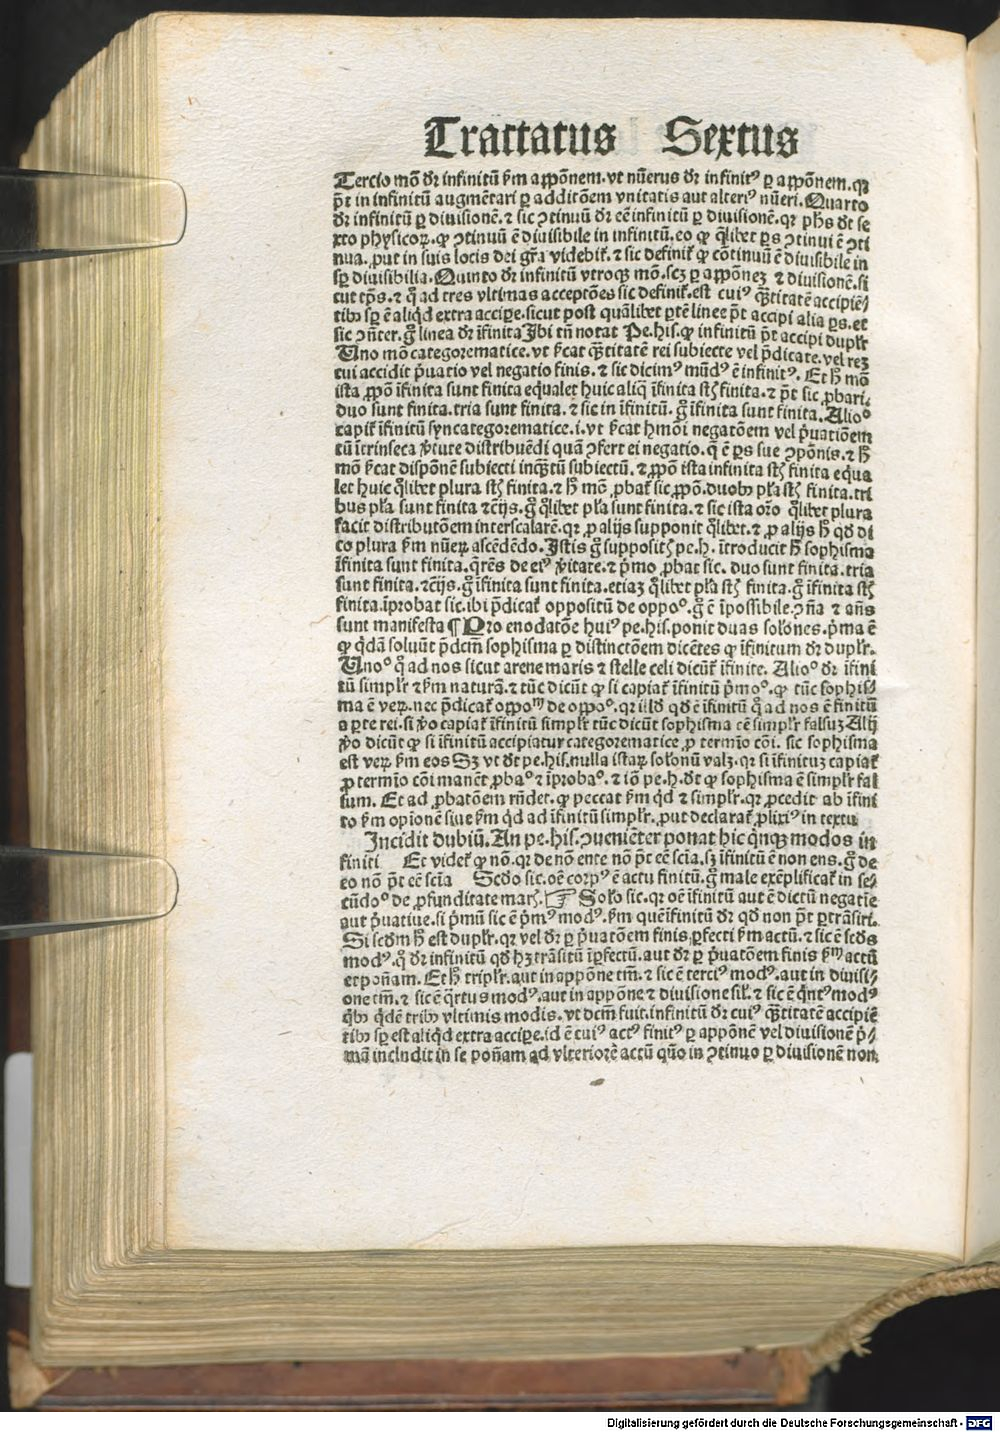 Tractatus Sextus
Tercio mō dr̄ infinitū ẜm appōnem. vt nūerus dr̄ infinitꝰ ꝑ appōnem. qꝛ
p̄t in infinitū augmētari ꝑ additōem vnitatis aut alteriꝰ nūeri. Quarto
dr̄ infinitū ꝑ diuisionē. ⁊ sic ꝯtinuū dr̄ eē infinitū ꝑ diuisionē. qꝛ phs dt se
xto physicoꝝ. ꝙ ꝯtinuū ē diuisibile in infinitū. eo ꝙ q̄libet ꝑs ꝯtinui ē ꝯti
nua. ꝓut in suis locis dei gr̄a videbiť. ⁊ sic definiť ꝙ cōtinuū ē diuisibile in
sꝑ diuisibilia. Quinto dr̄ infinitū vtroqꝫ mō. scꝫ ꝑ appōneꝫ ⁊ diuisionē. si
cut tp̄s. ⁊ q̊ ad tres vltimas acceptōes sic definiť. est cuiꝰ q̄ꝫtitatē accipiē/
tibꝰ sꝑ ē aliqd extra accipe. sicut post quālibet ꝑtē linee p̄t accipi alia ꝑs. et
sic ꝯn̄ter. g̊ linea dr̄ īfinita Ibi tn̄ notat Pe. his. ꝙ infinitū p̄t accipi duplr̄
Uno mō categorematice. vt ẜcat q̄ꝫtitatē rei subiecte vel p̄dicate. vel reꝫ
cui accidit p̄uatio vel negatio finis. ⁊ sic dicimꝰ mūdꝰ ē infinitꝰ. Et h̄ mō
ista ꝓpō īfinita sunt finita equalet huic aliq̄ īfinita st̄ finita. ⁊ p̄t sic ꝓbari.
duo sunt finita. tria sunt finita. ⁊ sic in īfinitū. g̊ īfinita sunt finita. Alio°
capiť īfinitū syncategorematice. i. vt ẜcat hmōi negatōem vel p̄uatiōem
tū ītrinseca v̓tute distribuēdi quā ꝯfert ei negatio. q̄ ē ꝑs sue ꝯpōnis. ⁊ h̄
mō ẜcat dispōnē subiecti inq̄ꝫtū subiectū. ⁊ ꝓpō ista infinita st̄ finita equa
let huic q̄libet plura st̄ finita. ⁊ h̄ mō ꝓbať sic ꝓpō. duobꝰ pła st̄ finita. tri
bus pła sunt finita ⁊cījs. g̊ q̄libet pła sunt finita. ⁊ sic ista or̄o q̄libet plura
facit distributōem interscalarē. qꝛ ꝓ alijs supponit q̄libet. ⁊ ꝓ alijs h̄ qd̄ di
co plura ẜm nūeꝝ ascēdēdo. Istis g̊ suppositꝭ pe. h. ītroducit h̄ sophisma
īfinita sunt finita. q̄rēs de eiꝰ v̓itate. ⁊ p̄mo ꝓbat sic. duo sunt finita. tria
sunt finita. ⁊cījs. g̊ īfinita sunt finita. etiaꝫ q̄libet pła st̄ finita. g̊ īfinita st̄
finita. īprobat sic. ibi p̄dicať oppositū de oppo°. g̊ ē īpossibile. ꝯn̄a ⁊ an̄s
sunt manifesta ¶ Pro enodatōe huiꝰ pe. his. ponit duas solōnes. p̄ma ē
ꝙ q̄dā soluūt p̄dcm̄ sophisma ꝑ distinctōem dicētes ꝙ īfinitum dr̄ duplr̄.
Uno° q̊ ad nos sicut arene maris ⁊ stelle celi dicūť īfinite. Alio° dr̄ īfini
tū simplr̄ ⁊ ẜm naturā. ⁊ tūc dicūt ꝙ si capiať īfinitū p̄mo°. ꝙ tūc sophis/
ma ē veꝝ. nec p̄dicať oppoᵐ de oppo°. qꝛ illd̄ qd̄ ē īfinitū q̊ ad nos ē finitū
a ꝑte rei. si v̓o capiať īfinitū simplr̄ tūc dicūt sophisma eē simplr̄ falsuꝫ Alij
v̓o dicūt ꝙ si īfinitū accipiatur categorematice ꝓ termīo cōi. sic sophisma
est veꝝ ẜm eos Sꝫ vt dt pe. his. nulla istaꝝ solōnū valꝫ. qꝛ si īfinituꝫ capiať
ꝓ termīo cōi manēt ꝓba° ⁊ īproba°. ⁊ iō pe. h. dt ꝙ sophisma ē simplr̄ fal
sum. Et ad ꝓbatōem rn̄det. ꝙ peccat ẜm q̄d ⁊ simplr̄. qꝛ ꝓcedit ab īfini
to ẜm opīonē siue ẜm q̄d ad īfinitū simplr̄. ꝓut declarať ꝓlixiꝰ in textu
Incidit dubiū. An pe. his. ꝯueniēter ponat hic q̄nqꝫ modos in
finiti Et videť ꝙ nō. qꝛ de nō ente nō p̄t eē scīa. sꝫ īfinitū ē non ens. g̊ de
eo nō p̄t eē scīa Scd̄o sic. oē corpꝰ ē actu finitū. g̊ male exēplificať in se/
cūdo° de ꝓfunditate marꝭ. ☞ Solō sic. qꝛ oē īfinitū aut ē dictū negatīe
aut p̄uatiue. si p̄mū sic ē p̄mꝰ modꝰ. ẜm quē īfinitū dr̄ qd̄ non p̄t ꝑtrāsiri.
Si scd̄m h̄ est duplr̄. qꝛ vel dr̄ ꝑ p̄uatōem finis ꝑfecti ẜm actū. ⁊ sic ē scd̄s
modꝰ. q̊ dr̄ infinitū qd̄ hꝫ trāsitū īꝑfectū. aut dr̄ ꝑ p̄uatōem finis ẜm actū
et pon̄am. Et h̄ triplr̄. aut in appōne tm̄. ⁊ sic ē terciꝰ modꝰ. aut in diuisi/
one tm̄. ⁊ sic ē q̄rtus modꝰ. aut in appōne ⁊ diuisione sił. ⁊ sic ē q̄ntꝰ modꝰ
q̄bꝰ q̄dē tribꝰ vltimis modis. vt dcm̄ fuit. infinitū dr̄ cuiꝰ q̄ꝫtitatē accipiē
tibꝰ sꝑ est aliqd extra accipe. id ē cuiꝰ actꝰ finitꝰ ꝑ appōnē vel diuisionē p̄/
mā includit in se pon̄am ad vlteriorē actū quō in ꝯtinuo ꝑ diuisionē non
Digitalisierung gefördert durch die Deutsche Forschungsgemeinschaft - DFG